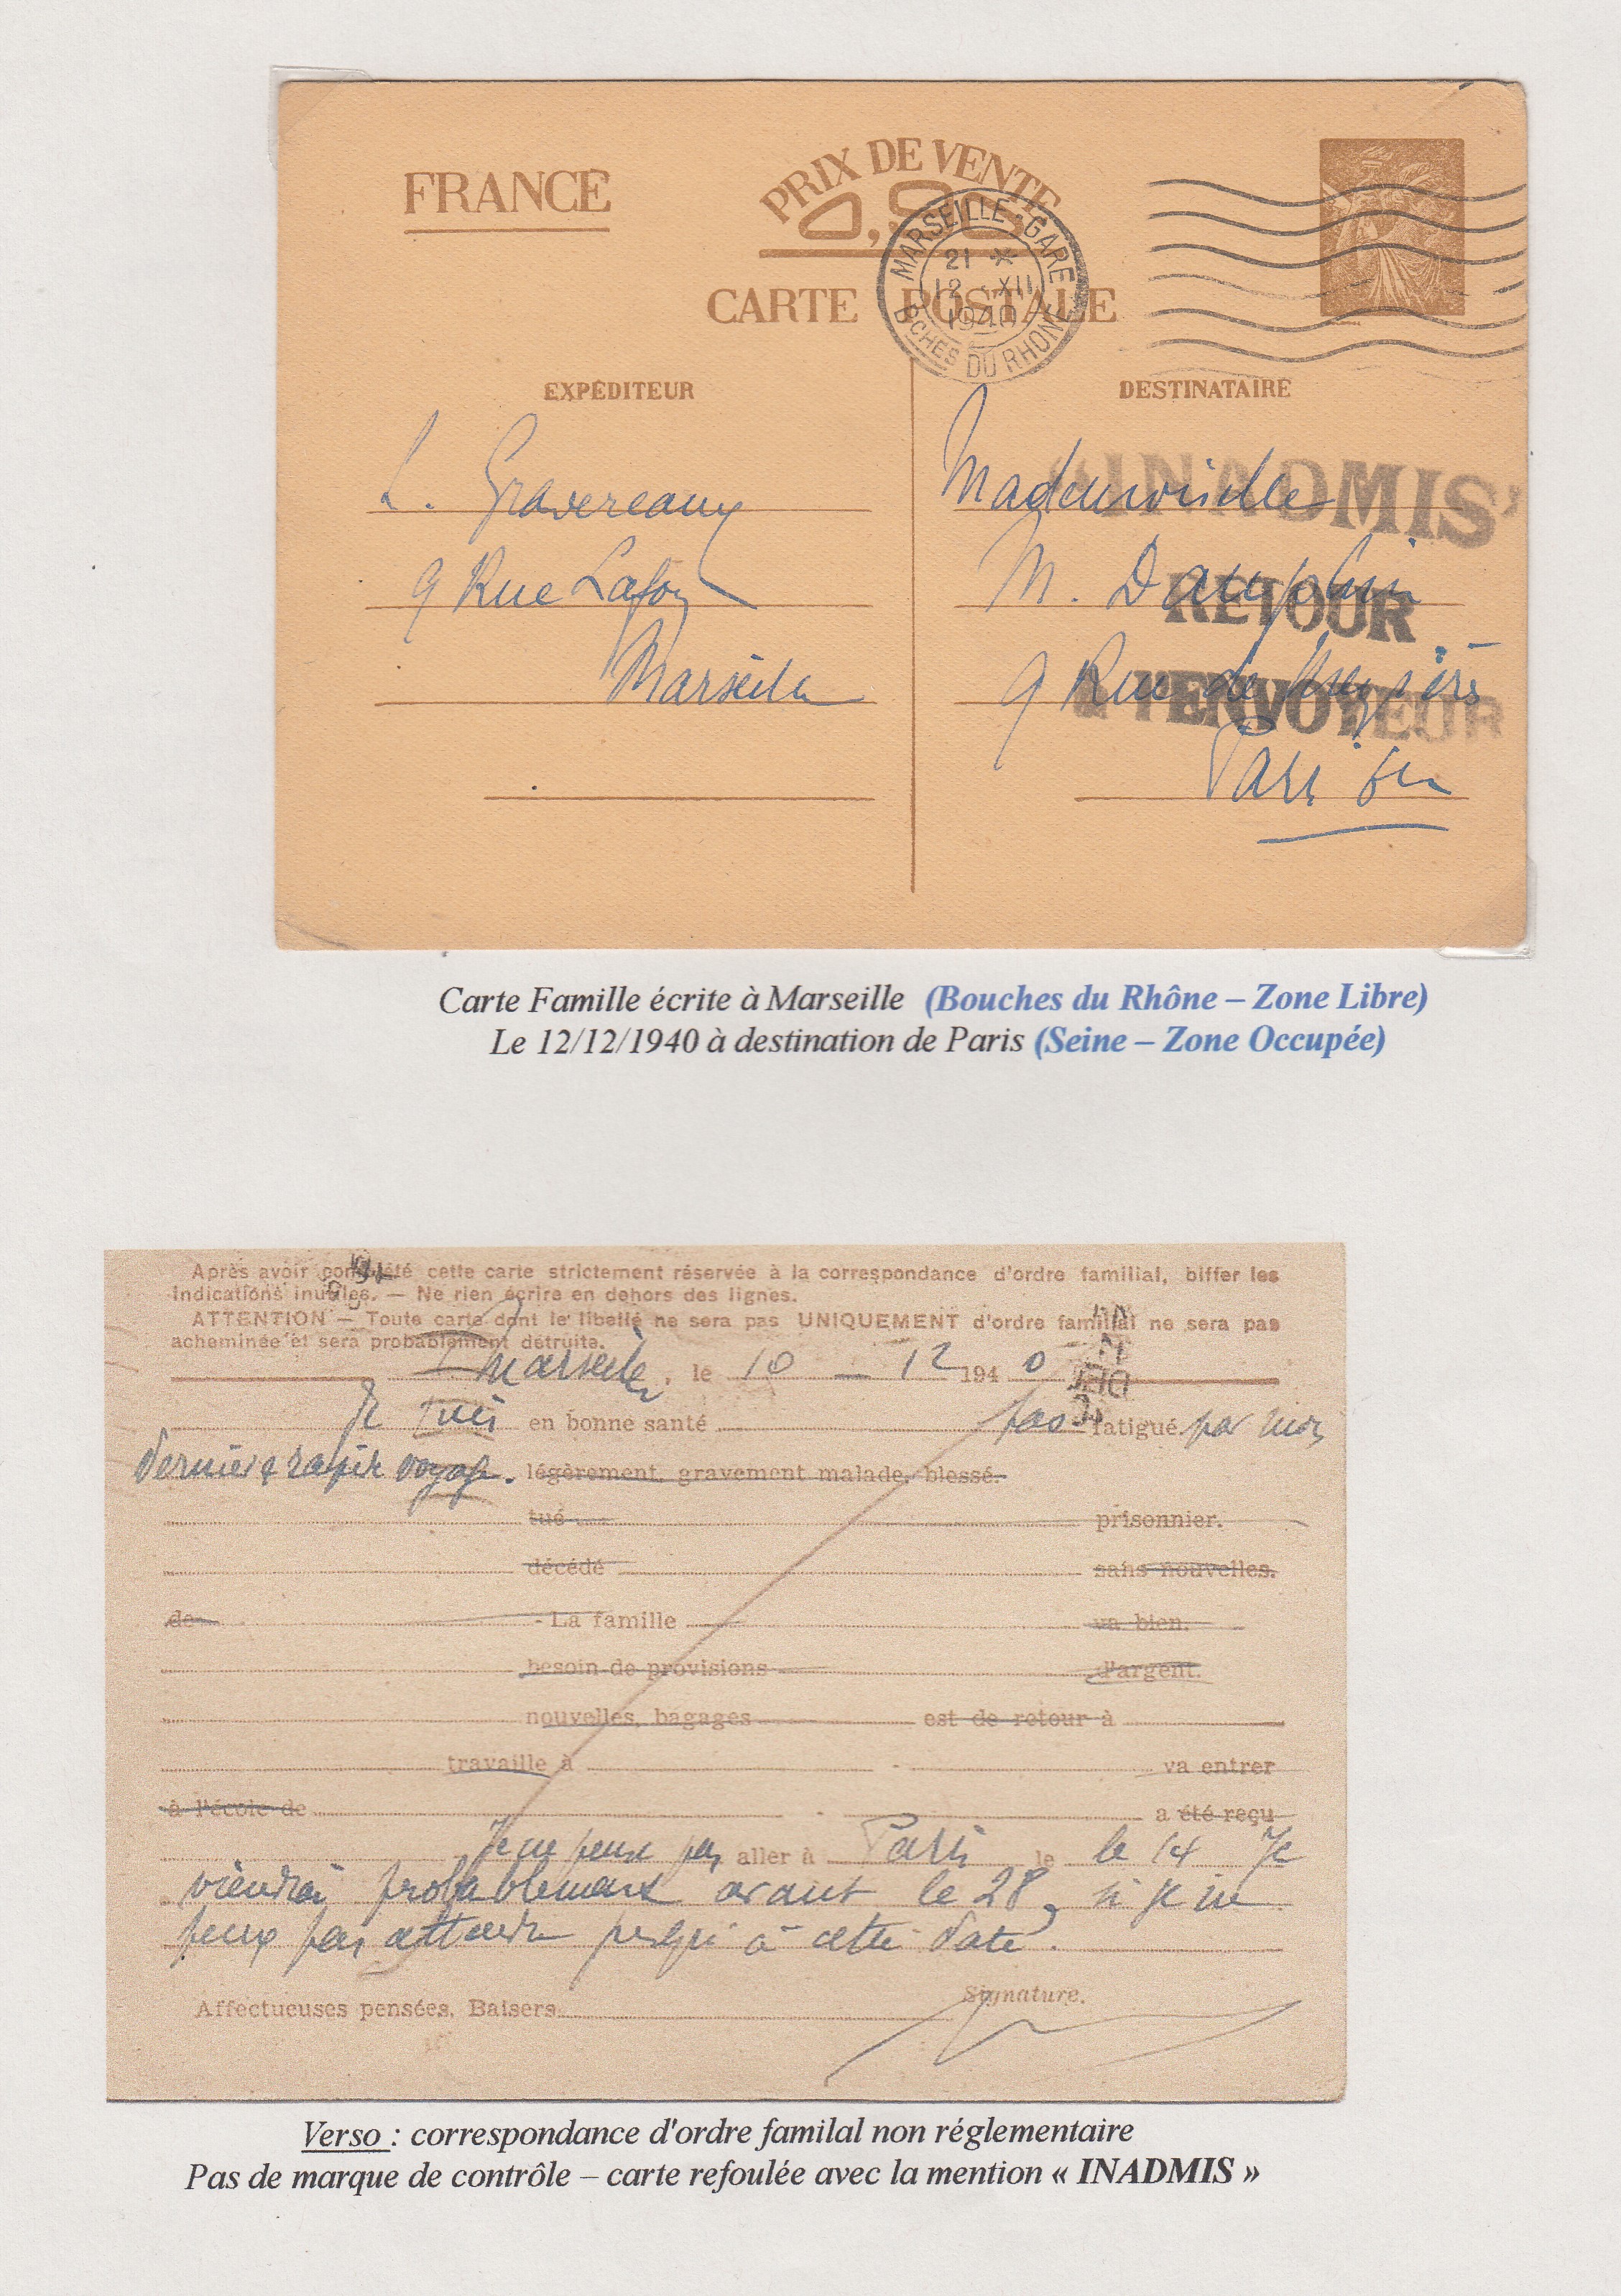 FRANCE
PRIX DE VENTE
0,90
CARTE POSTALE
MARSEILLE-GARE
21 *
12 - XII
1940
BCHES DU RHONE
EXPÉDITEUR
DESTINATAIRE
L. Gravereaux
9 Rue Lafon
Marseille
"INADMIS"
Mademoiselle
M. Dauphin
RETOUR
9 Rue de
à l'ENVOYEUR
Paris
Carte Famille écrite à Marseille (Bouches du Rhône – Zone Libre)
Le 12/12/1940 à destination de Paris (Seine – Zone Occupée)
Après avoir complété cette carte strictement réservée à la correspondance d'ordre familial, biffer les
indications inutiles. — Ne rien écrire en dehors des lignes.
ATTENTION — Toute carte dont le libellé ne sera pas UNIQUEMENT d'ordre familial ne sera pas
acheminée et sera probablement détruite.
Marseille, le 10 — 12 1940
Je suis en bonne santé pas fatigué par mon
dernier & rapide voyage. légèrement, gravement malade, blessé.
tué prisonnier.
décédé sans nouvelles.
de - La famille va bien.
besoin de provisions d'argent.
nouvelles, bagages est de retour à
travaille à - va entrer
à l'école de - a été reçu
Je ne peux pas aller à Paris le le 14 Je
viendrai probablement avant le 28, si je ne
peux pas attendre jusqu'à cette date.
Affectueuses pensées. Baisers.
Signature.
Verso : correspondance d'ordre familal non réglementaire
Pas de marque de contrôle – carte refoulée avec la mention « INADMIS »